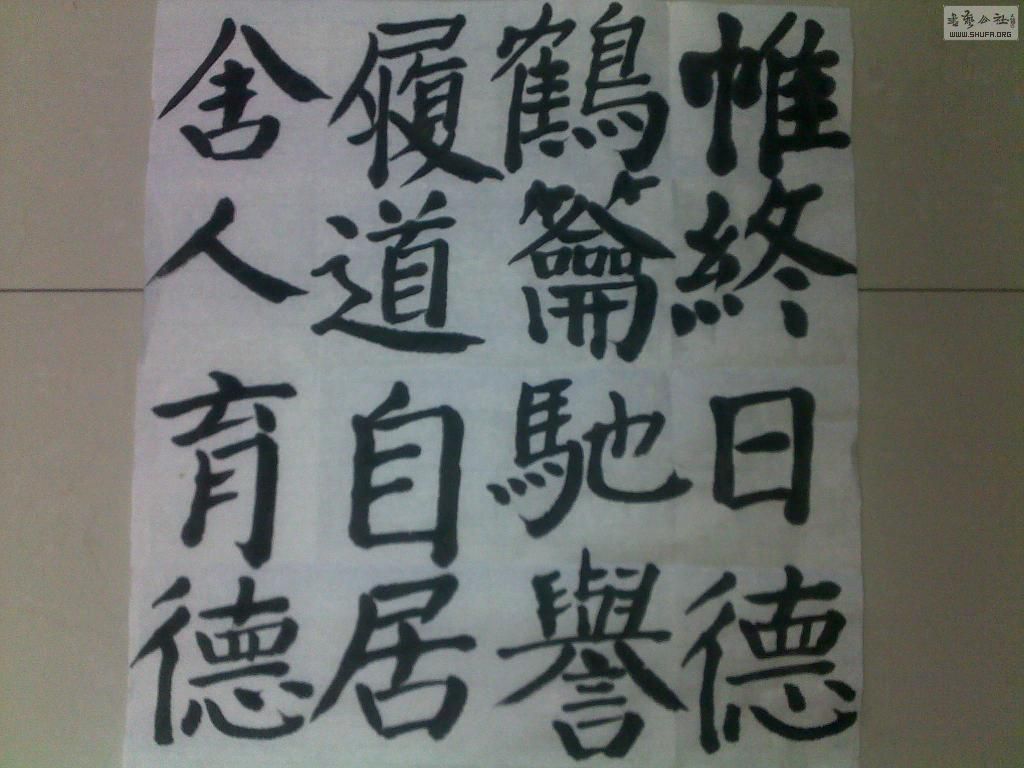 帷終日德
鶴籥馳譽
履道自居
舍人育德
書藝公社
WWW.SHUFA.ORG